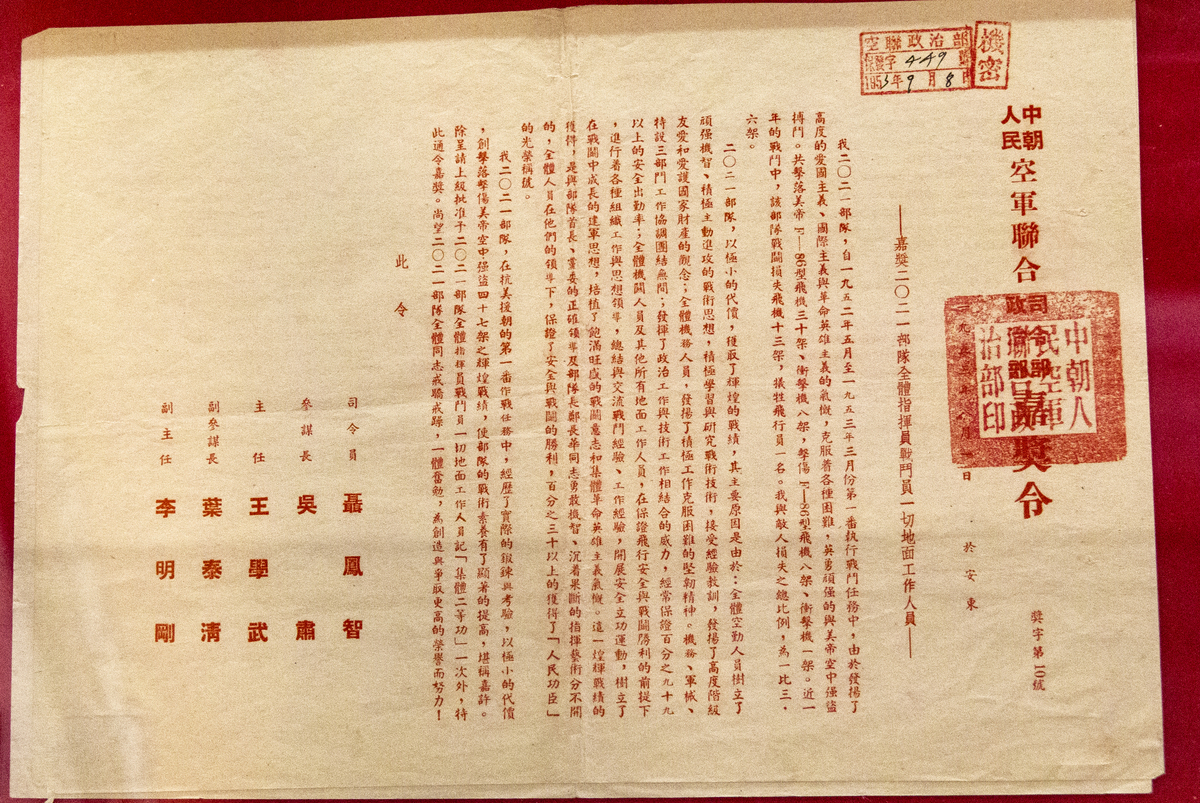 機密
空聯政治部
字449號
1953年9月8日
中朝
人民
空軍聯合
司令部
政
嘉獎令
中朝人
民空軍
治部印
獎字第10號
一九五三年八月
日 於安東
——嘉獎二〇二一部隊全體指揮員戰鬥員一切地面工作人員——
我二〇二一部隊,自一九五二年五月至一九五三年三月份第一番執行戰鬥任務中,由於發揚了
高度的愛國主義、國際主義與革命英雄主義的氣概,克服着各種困難,英勇頑強的與美帝空中強盜
搏鬥。共擊落美帝F—86型飛機三十架、衝擊機八架,擊傷F—86型飛機八架、衝擊機一架。近一
年的戰鬥中,該部隊戰鬪損失飛機十三架,犧牲飛行員一名。我與敵人損失之總比例,為一比三·
六架。
二〇二一部隊,以極小的代價,獲取了輝煌的戰績,其主要原因是由於:全體空勤人員樹立了
頑强機智、積極主動進攻的戰術思想,積極學習與研究戰術技術,接受經驗教訓,發揚了高度階級
友愛和愛護國家財產的觀念;全體機務人員,發揚了積極工作克服困難的堅韌精神。機務、軍械、
特設三部門工作協調團結無間;發揮了政治工作與技術工作相結合的威力,經常保證百分之九十九
以上的安全出勤率;全體機關人員及其他所有地面工作人員,在保證飛行安全與戰鬪勝利的前提下
,進行着各種組織工作與思想領導,總結與交流戰鬥經驗、工作經驗,開展安全立功運動,樹立了
在戰鬪中成長的建軍思想,培植了飽滿旺盛的戰鬪意志和集體革命英雄主義氣概。這一煌輝戰績的
獲得,是與部隊首長、黨委的正確領導及部隊長鄭長華同志勇敢機智、沉着果斷的指揮藝術分不開
的,全體人員在他們的領導下,保證了安全與戰鬪的勝利,百分之三十以上的獲得了「人民功臣」
的光榮稱號。
我二〇二一部隊,在抗美援朝的第一番作戰任務中,經歷了實際的鍛鍊與考驗,以極小的代價
,創擊落擊傷美帝空中強盜四十七架之輝煌戰績,使部隊的戰術素養有了顯著的提高,堪稱嘉許。
除呈請上級批准予二〇二一部隊全體指揮員戰鬥員一切地面工作人員記「集體二等功」一次外,特
此通令嘉獎。尚望二〇二一部隊全體同志戒驕戒躁,一體奮勉,為創造與爭取更高的榮譽而努力!
此 令
司令員 聶鳳智
參謀長 吳肅
主任 王學武
副參謀長 葉泰清
副主任 李明剛